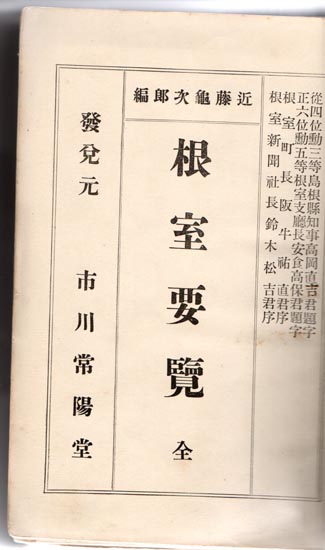 從四位勳三等島根縣知事高岡直吉君題字
正六位勳五等根室支廳長安食高保君題字
根室町長阪牛祐直君序
根室新聞社長鈴木松吉君序
近藤龜次郎編
根室要覽 全
發兌元 市川常陽堂